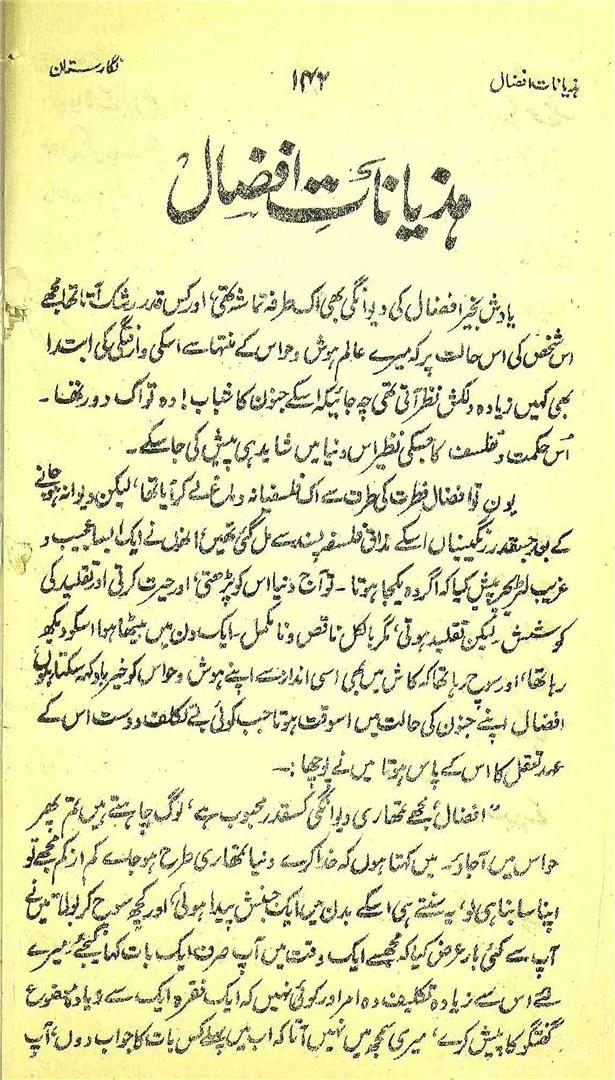 ہذیانات افضال ۱۴۲ نگارستان
ہذیاناتِ افضال
یادش بخیر افضال کی دیوانگی بھی اک طرفہ تماشہ تھی، اور کس قدر رشک آتا تھا مجھے
اس شخص کی اس حالت پر کہ میرے عالم ہوش و حواس کے منتہا سے اسکی وارفتگی کی ابتدا
بھی کہیں زیادہ دلکش نظر آتی تھی چہ جائیکہ اسکے جنون کا شباب! وہ تو اک دور تھا۔
اُس حکمت و تفلسف کا جسکی نظیر اس دنیا میں شاید ہی پیش کی جا سکے۔
یوں تو افضال فطرت کی طرف سے اک فلسفیانہ دماغ لے کر آیا تھا، لیکن دیوانہ ہو جانے
کے بعد جسقدر رنگینیاں اسکے مذاق فلسفہ پسند سے مل گئی تھیں انہوں نے ایک ایسا عجیب و
غریب لٹریچر پیش کیا کہ اگر وہ یکجا ہوتا۔ تو آج دنیا اس کو پڑھتی، اور حیرت کرتی اور تقلید کی
کوشش۔ لیکن تقلید ہوتی، مگر بالکل ناقص و نامکمل۔ ایک دن میں بیٹھا ہوا اسکو دیکھ
رہا تھا، اور سوچ رہا تھا کہ کاش میں بھی اسی انداز سے اپنے ہوش و حواس کو خیر باد کہہ سکتا ہوں
افضال اپنے جنون کی حالت میں اسوقت ہوتا جب کوئی بے تکلف دوست اس کے
عہد تعقل کا اس کے پاس ہوتا میں نے پوچھا:۔
"افضال، مجھے تمھاری دیوانگی کسقدر محبوب ہے، لوگ چاہتے ہیں تم پھر
حواس میں آجاؤ۔ میں کہتا ہوں کہ خدا کرے دنیا تمھاری طرح ہو جائے کم از کم مجھے تو
اپنا سا بنا ہی لو، یہ سنتے ہی اسکے بدن میں ایک جنبش پیدا ہوئی، اور کچھ سوچ کر بولا "میں نے
آپ سے کئی بار عرض کیا کہ مجھسے ایک وقت میں آپ صرف ایک بات کہا کیجئے، میرے
لئے اس سے زیادہ تکلیف دہ امر اور کوئی نہیں کہ ایک فقرہ ایک سے زیادہ موضوع
گفتگو کا پیش کرے، میری سمجھ میں نہیں آتا کہ اب میں پہلے کس بات کا جواب دوں، آپ